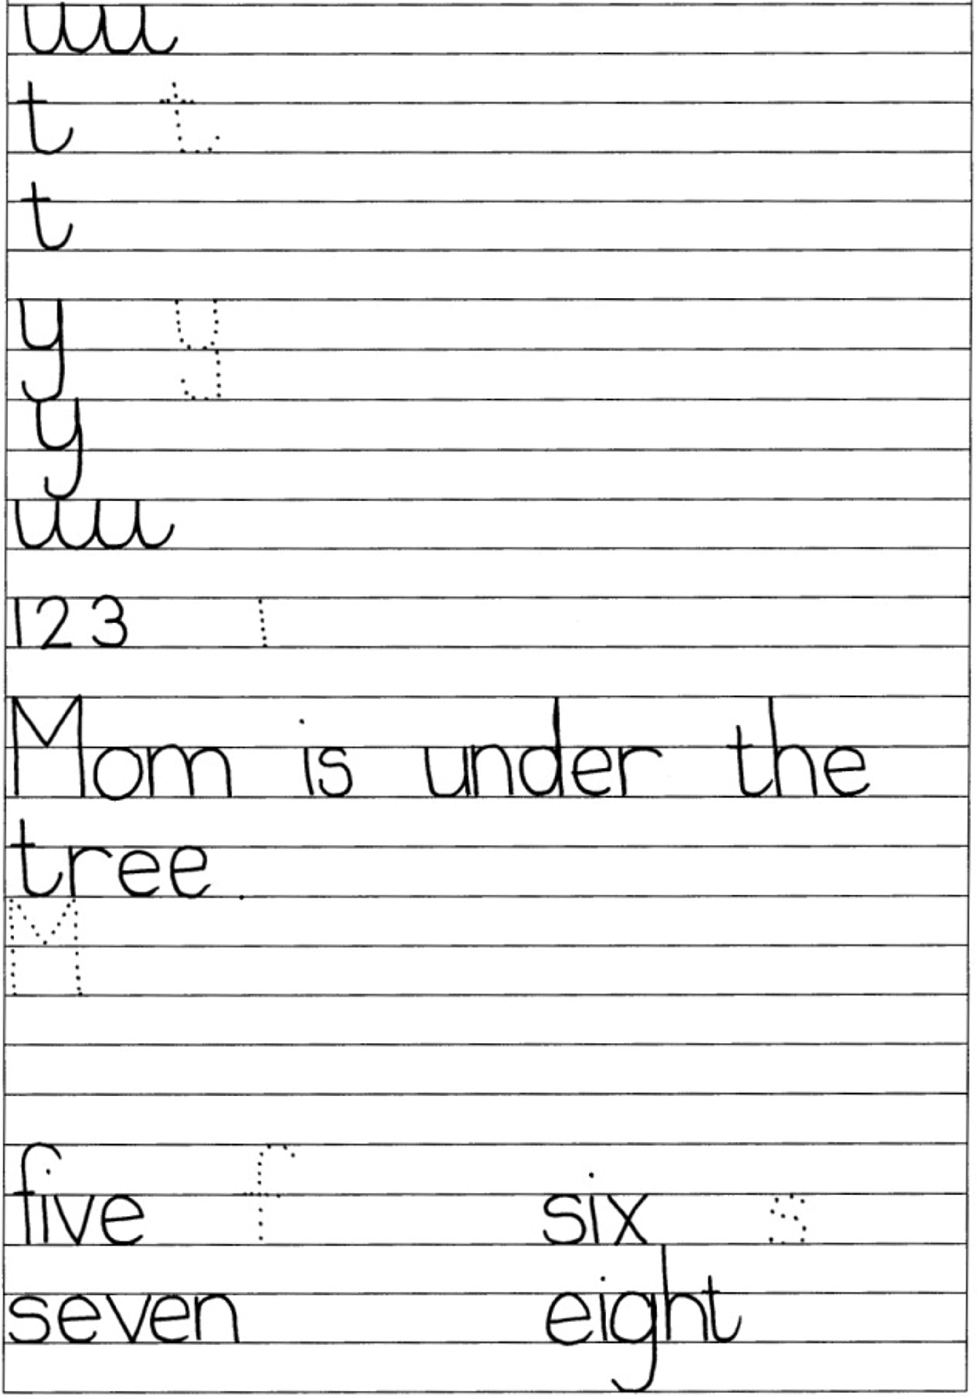 uuu
t t
t
y y
y
uuu
123 1
Mom is under the
tree.
M
five f six s
seven eight